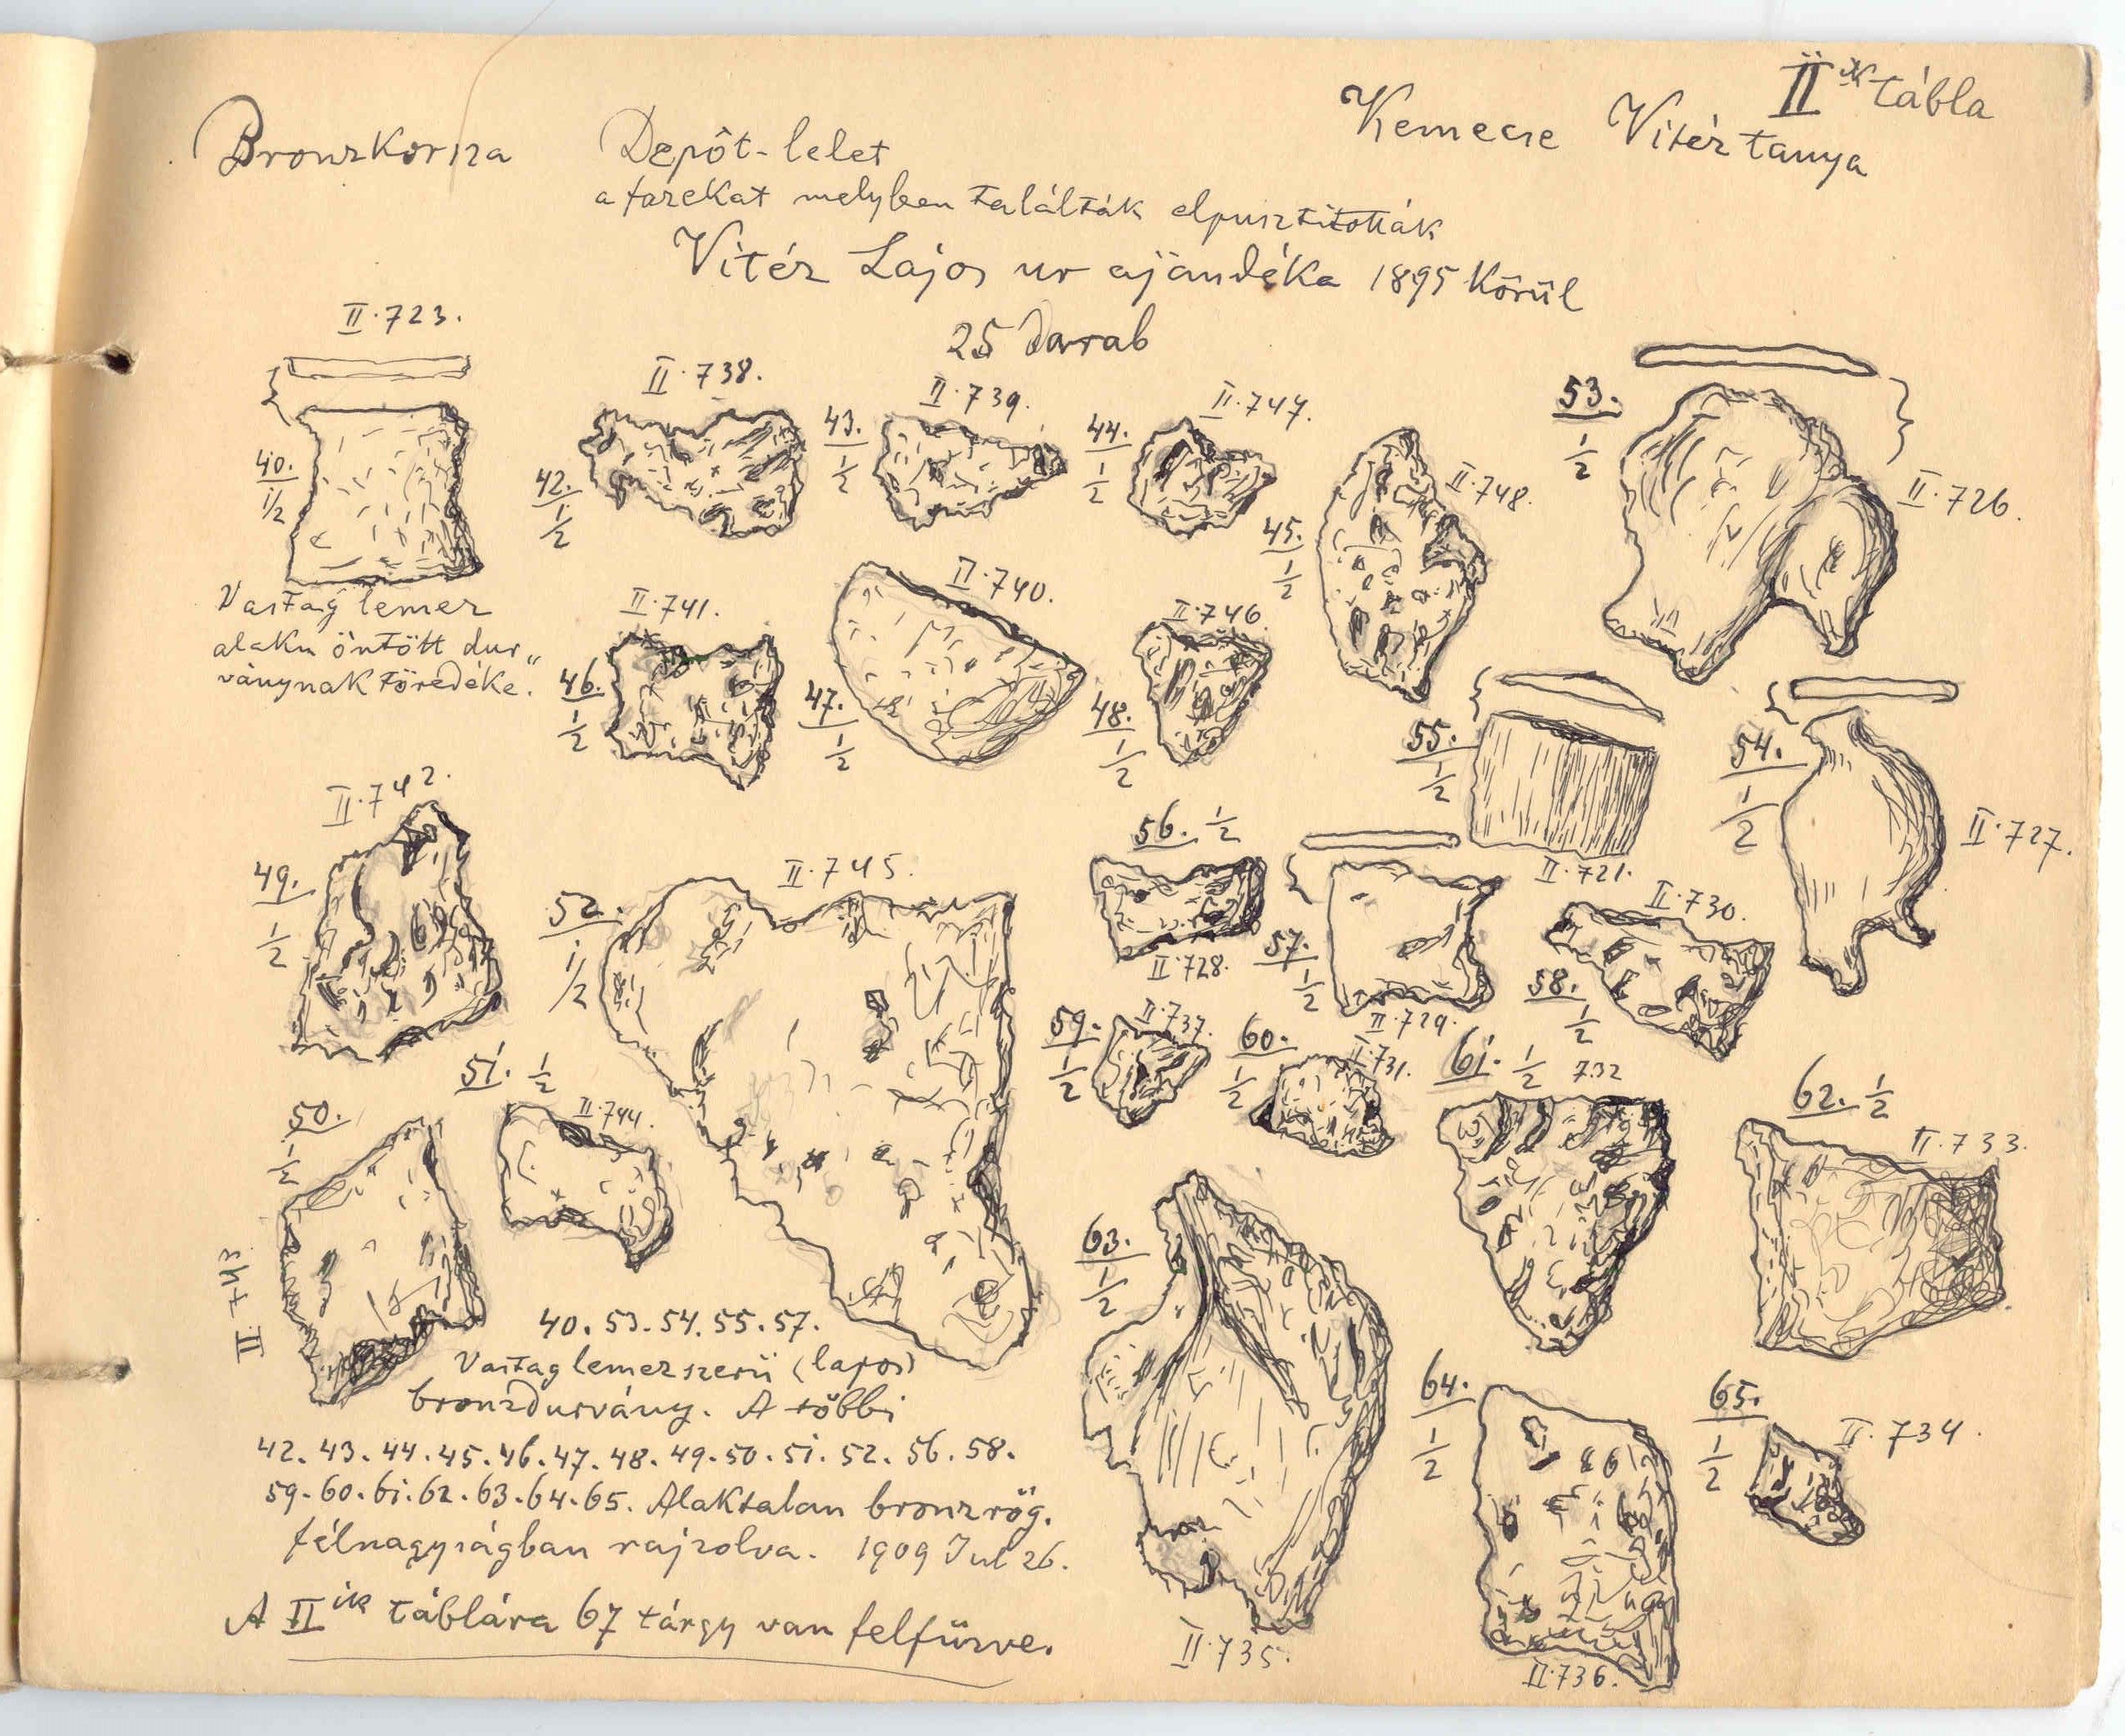 IIik tábla
Bronzkorsza
Depôt-lelet
Kemecse Vitéz tanya
a fazekat melyben találták elpusztitották
Vitéz Lajos ur ajándéka 1895 körül
25 darab
II.723.
40.
1/2
Vastag lemez
alaku öntött dur„
ványnak töredéke.
II.738.
42.
1/2
II.739.
43.
1/2
II.747.
44.
1/2
II.748.
45.
1/2
53.
1/2
II.726.
II.741.
46.
1/2
II.740.
47.
1/2
II.746.
48.
1/2
55.
1/2
II.721.
54.
1/2
II.727.
II.742.
49.
1/2
II.745.
52.
1/2
56. 1/2
II.728.
57.
1/2
II.729.
II.730.
58.
1/2
59.
1/2
II.737.
60.
1/2
II.731.
61. 1/2 732
62. 1/2
II.733.
50.
1/2
II.743.
51. 1/2
II.744.
63.
1/2
II.735.
64.
1/2
II.736.
65.
1/2
II.734.
40.53.54.55.57.
Vastag lemezszerü (lapos)
bronzdurvány. A többi
42.43.44.45.46.47.48.49.50.51.52.56.58.
59.60.61.62.63.64.65. Alaktalan bronzrög.
félnagyságban rajzolva. 1909 Jul 26.
A IIik táblára 67 tárgy van felfüzve.